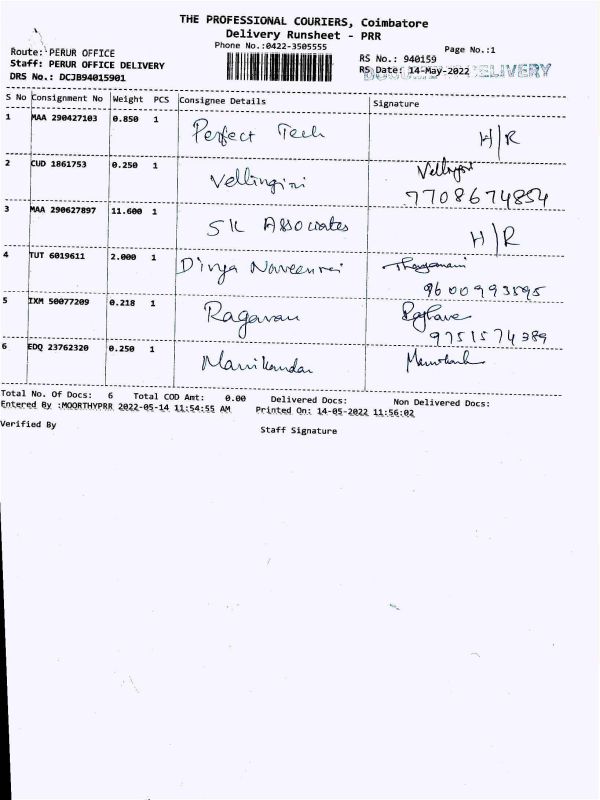 THE PROFESSIONAL COURIERS, Coimbatore
Delivery Runsheet - PRR
Phone No.:0422-3505555
Page No.:1
Route: PERUR OFFICE
RS No.: 940159
Staff: PERUR OFFICE DELIVERY
RS Date: 14-May-2022 DELIVERY
DRS No.: DCJB94015901
S No Consignment No Weight PCS Consignee Details Signature
1 MAA 290427103 0.850 1 Perfect Tech H/R
2 CUD 1861753 0.250 1 Vellingiri
7708674854
3 MAA 290627897 11.600 1 SK Associates H/R
4 TUT 6019611 2.000 1 Divya Naveenraj Thangamani
9600993595
5 IXM 50077209 0.218 1 Ragavan
9751574389
6 EDQ 23762320 0.250 1 Manikandan
Total No. Of Docs: 6 Total COD Amt: 0.00 Delivered Docs: Non Delivered Docs:
Entered By :MOORTHYPRR 2022-05-14 11:54:55 AM Printed On: 14-05-2022 11:56:02
Verified By
Staff Signature